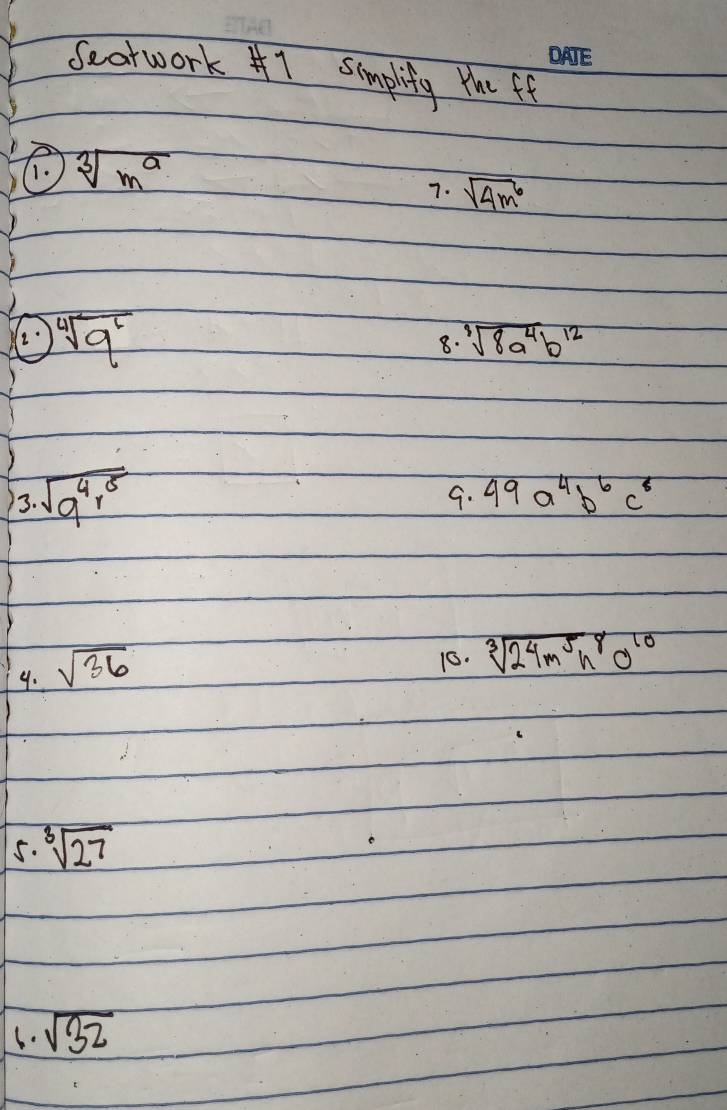 DATE
Seatwork #1 Simplify the ff
1. ∛m^a
7. √4m⁶
2. ∜q
8. ∛8a⁴b¹²
3. √q⁴r⁵
9. 49 a⁴b⁶c⁸
4. √36
10. ∛24m⁵n⁸o¹⁰
5. ∛27
6. √32